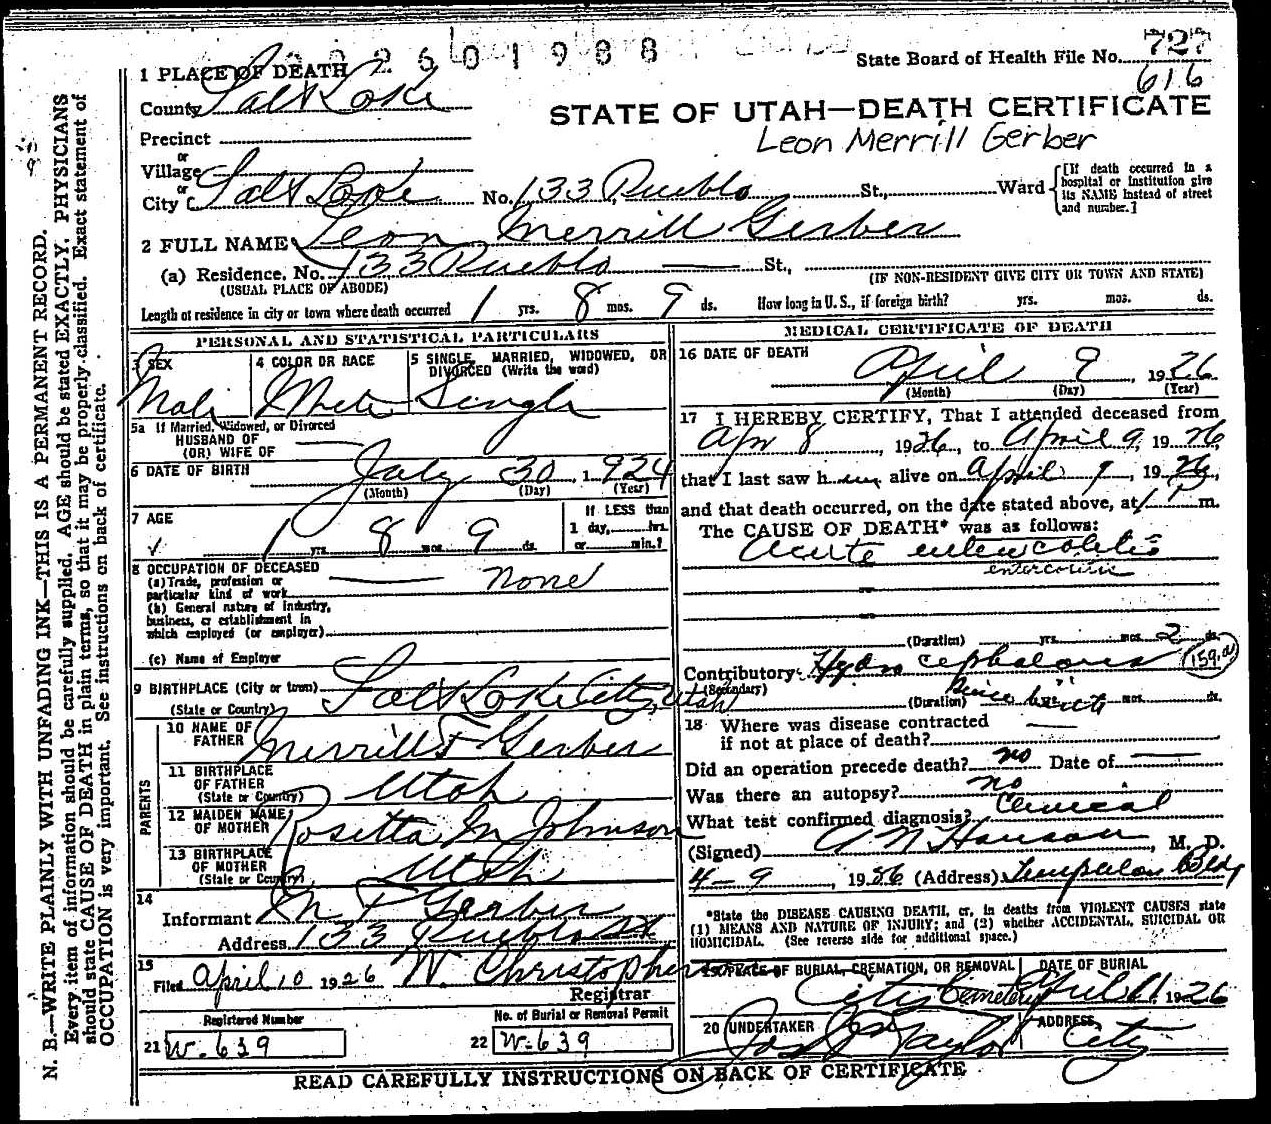 2601988
State Board of Health File No. 727
616
1 PLACE OF DEATH
County Salt Lake
STATE OF UTAH—DEATH CERTIFICATE
Leon Merrill Gerber
Precinct
or
Village
or
City Salt Lake No. 133 Pueblo St., Ward
[If death occurred in a hospital or institution give its NAME instead of street and number.]
2 FULL NAME Leon Merrill Gerber
(a) Residence. No. 133 Pueblo St.,
(USUAL PLACE OF ABODE) (IF NON-RESIDENT GIVE CITY OR TOWN AND STATE)
Length of residence in city or town where death occurred 1 yrs. 8 mos. 9 ds. How long in U. S., if foreign birth? yrs. mos. ds.
PERSONAL AND STATISTICAL PARTICULARS
3 SEX Male
4 COLOR OR RACE White
5 SINGLE, MARRIED, WIDOWED, OR DIVORCED (Write the word) Single
5a If Married, Widowed, or Divorced
HUSBAND OF
(OR) WIFE OF
6 DATE OF BIRTH July 30, 1924
(Month) (Day) (Year)
7 AGE 1 yrs. 8 mos. 9 ds.
If LESS than
1 day, hrs.
or min.?
8 OCCUPATION OF DECEASED
(a) Trade, profession or particular kind of work None
(b) General nature of industry, business, or establishment in which employed (or employer)
(c) Name of Employer
9 BIRTHPLACE (City or town) Salt Lake City, Utah
(State or Country)
PARENTS
10 NAME OF FATHER Merrill F Gerber
11 BIRTHPLACE OF FATHER Utah
(State or Country)
12 MAIDEN NAME OF MOTHER Rosetta M Johnson
13 BIRTHPLACE OF MOTHER Utah
(State or Country)
14
Informant M F Gerber
Address 133 Pueblo St
15
Filed April 10 1926 W. Christopherson
Registrar
Registered Number
21 W-639
No. of Burial or Removal Permit
22 W-639
MEDICAL CERTIFICATE OF DEATH
16 DATE OF DEATH
April 9, 1926
(Month) (Day) (Year)
17 I HEREBY CERTIFY, That I attended deceased from
Apr 8, 1926, to April 9, 1926
that I last saw him alive on April 9, 1926,
and that death occurred, on the date stated above, at 1 P m.
The CAUSE OF DEATH* was as follows:
Acute enterocolitis
enterocolitis
(Duration) yrs. mos. 2 ds.
Contributory Hydrocephalous 159.a
(Secondary)
(Duration) Since birth mos. ds.
18 Where was disease contracted
if not at place of death?
Did an operation precede death? no Date of
Was there an autopsy? no
What test confirmed diagnosis? Clinical
(Signed) A N Hanson, M. D.
4-9, 1926 (Address) Templeton Bldg
*State the DISEASE CAUSING DEATH, or, in deaths from VIOLENT CAUSES state
(1) MEANS AND NATURE OF INJURY; and (2) whether ACCIDENTAL, SUICIDAL OR
HOMICIDAL. (See reverse side for additional space.)
19 PLACE OF BURIAL, CREMATION, OR REMOVAL City Cemetery
DATE OF BURIAL April 11, 1926
20 UNDERTAKER Jos Taylor
ADDRESS City
READ CAREFULLY INSTRUCTIONS ON BACK OF CERTIFICATE
N. B.—WRITE PLAINLY WITH UNFADING INK—THIS IS A PERMANENT RECORD.
Every item of information should be carefully supplied. AGE should be stated EXACTLY. PHYSICIANS
should state CAUSE OF DEATH in plain terms, so that it may be properly classified. Exact statement of
OCCUPATION is very important. See instructions on back of certificate.